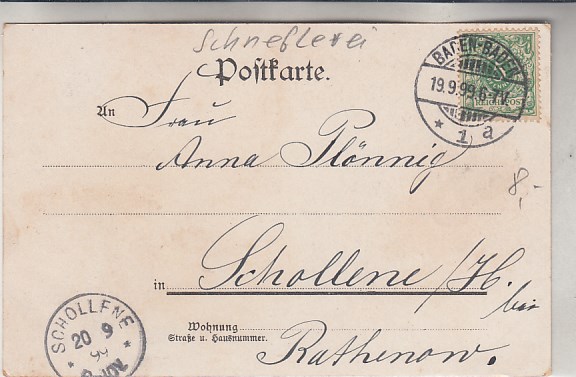 Postkarte.
BADEN-BADEN
19.9.99.6-7N.
* 1 a
REICHSPOST
An Frau
Anna Plönnig
8,-
in Schollene/H.
bei
Wohnung
Straße u. Hausnummer.
Rathenow.
SCHOLLENE
20 9
99